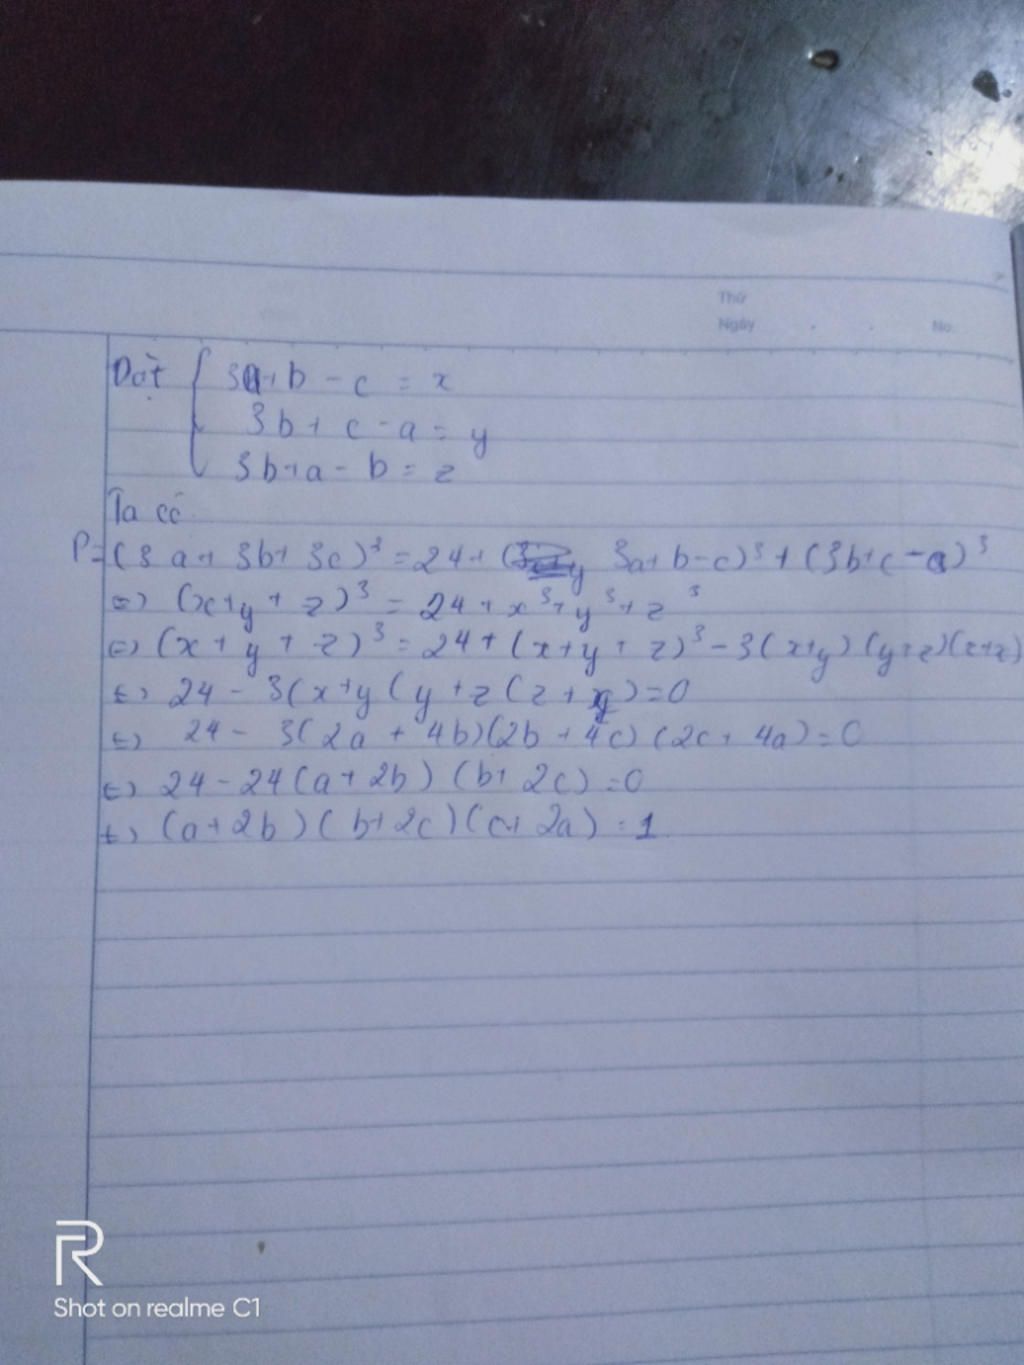 Thứ
Ngày . . No.
Đặt { 3a+b-c=x
3b+c-a=y
3b+a-b=z
Ta có
P=(3a+3b+3c)³=24+( 3a+b-c)³+(3b+c-a)³
⇔ (x+y+z)³=24+x³+y³+z³
⇔ (x+y+z)³=24+(x+y+z)³-3(x+y)(y+z)(z+x)
⇔ 24-3(x+y(y+z(z+x)=0
⇔ 24-3(2a+4b)(2b+4c)(2c+4a)=0
⇔ 24-24(a+2b)(b+2c)=0
⇔ (a+2b)(b+2c)(c+2a)=1
R
Shot on realme C1